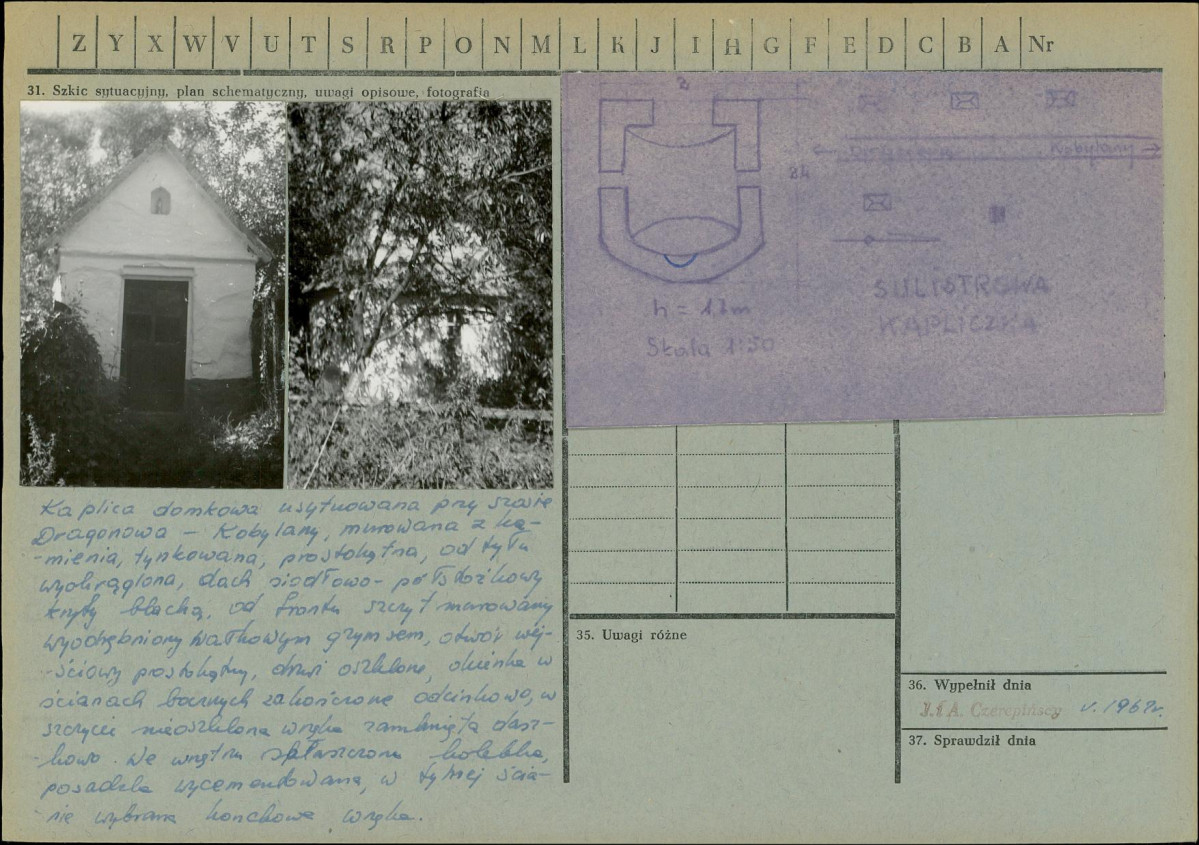 Z Y X W V U T S R P O N M L K J I H G F E D C B A Nr
31. Szkic sytuacyjny, plan schematyczny, uwagi opisowe, fotografia
Kaplica domkowa usytuowana przy szosie
Dragonowa – Kobylany, murowana z ka-
-mienia, tynkowana, prostokątna, od tyłu
wyokrąglona, dach siodłowo-półstożkowy
kryty blachą, od frontu szczyt murowany
wyodrębniony wałkowym gzymsem, otwór wej-
-ściowy prostokątny, drzwi oszklone, okienka w
ścianach bocznych zakończone odcinkowo, w
szczycie nieoszklona wnęka zamknięta dasz-
-kowo. We wnętrzu spłaszczona kolebka,
posadzka wycementowana, w tylnej ścia-
-nie wybrana konchowa wnęka.
2
84
Kobylany
h = 1.8m
Skala 1:50
SULISTROWA
KAPLICZKA
35. Uwagi różne
36. Wypełnił dnia
J. i A. Czerepińscy V. 1967r.
37. Sprawdził dnia